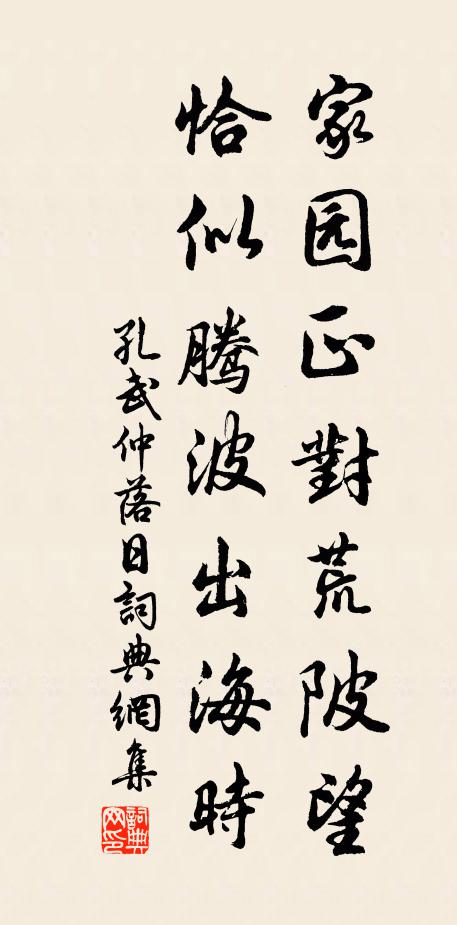 家园正對荒陂望
恰似腾波出海時
孔武仲落日詞典網集
詞典网印